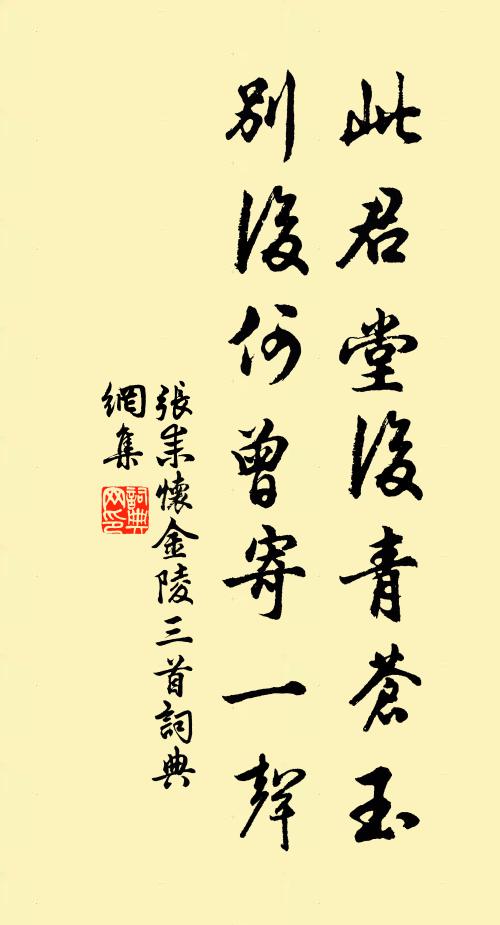 此君堂後青蒼玉
別後何曾寄一聲
張耒懷金陵三首詞典
網集
詞典
网印